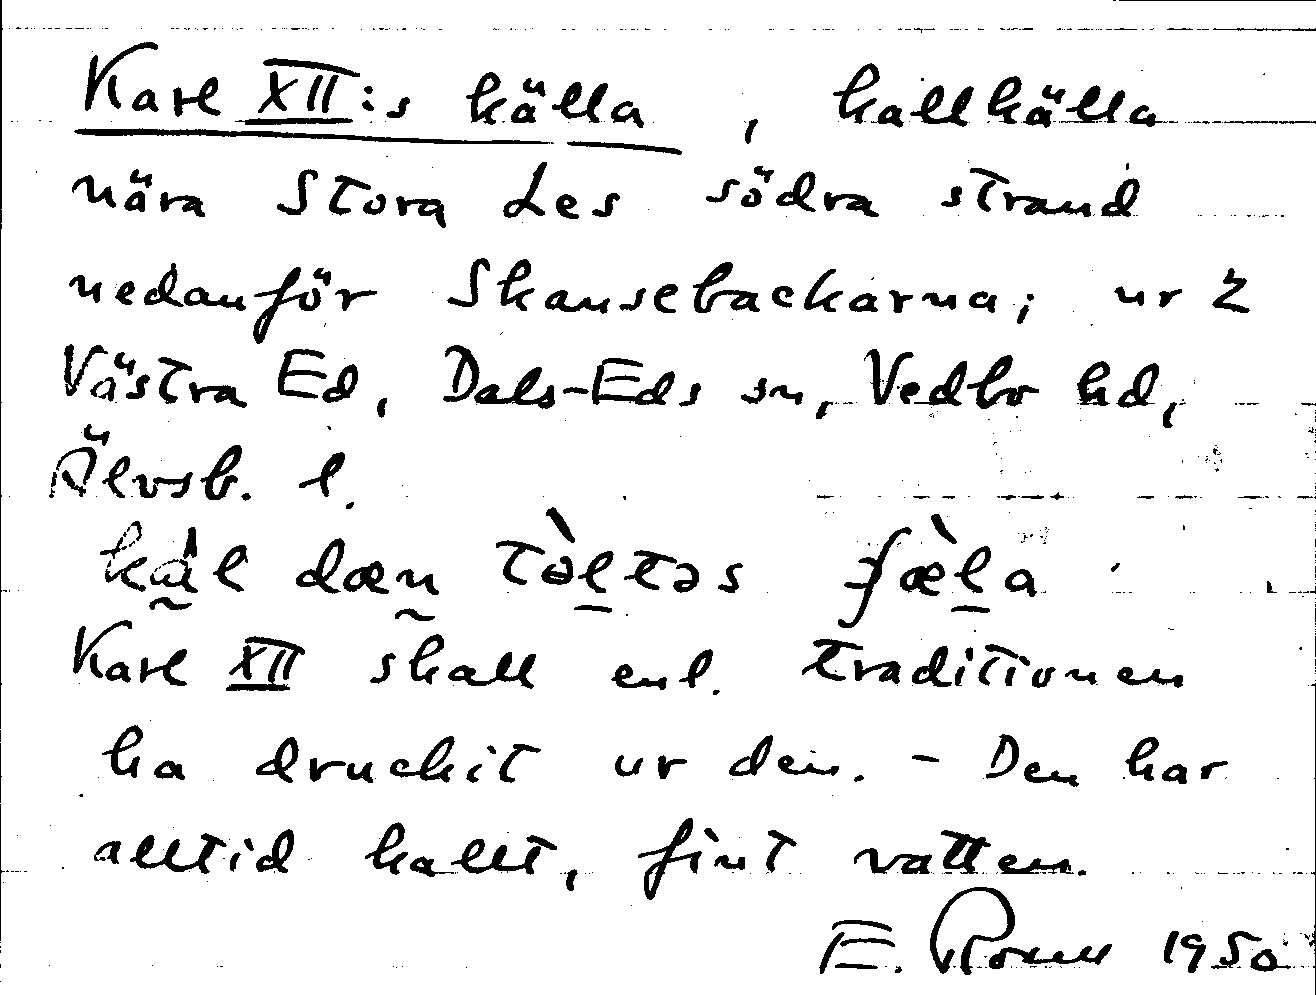 Karl XII:s källa, kallkälla
nära Stora Les södra strand
nedanför Skansebackarna; ur 2
Västra Ed, Dals-Eds sn, Vedbo hd,
Älvsb. l.
dæn tə̀ltəs
Karl XII skall enl. traditionen
ha druckit ur den. - Den har
alltid kallt, fint vatten.
E. 1950